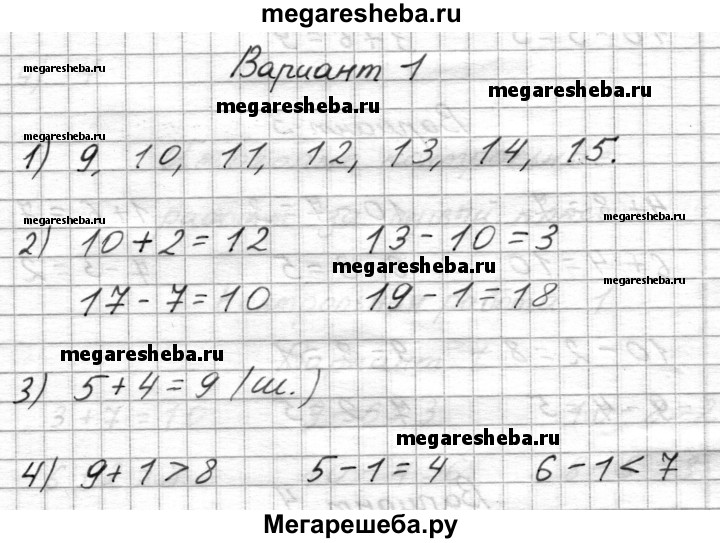 megaresheba.ru
Вариант 1
megaresheba.ru
megaresheba.ru
megaresheba.ru
1) 9, 10, 11, 12, 13, 14, 15.
megaresheba.ru
megaresheba.ru
2) 10 + 2 = 12 13 - 10 = 3
megaresheba.ru
megaresheba.ru
17 - 7 = 10 19 - 1 = 18
megaresheba.ru
3) 5 + 4 = 9 (ш.)
megaresheba.ru
4) 9 + 1 > 8 5 - 1 = 4 6 - 1 < 7
Мегарешеба.ру